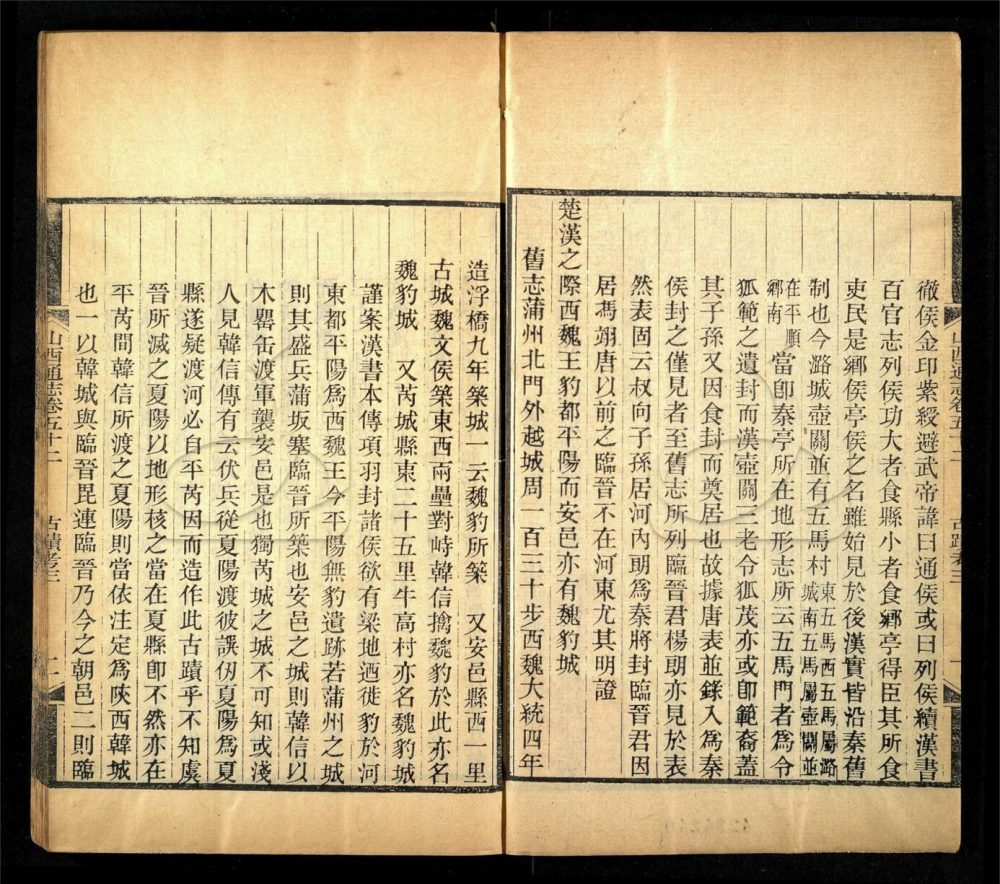 徹侯金印紫綬避武帝諱曰通侯或曰列侯續漢書
百官志列侯功大者食縣小者食鄉亭得臣其所食
吏民是鄉侯亭侯之名雖始見於後漢實皆沿秦舊
制也今潞城壺關並有五馬村東五馬西五馬屬潞城南五馬屬壺關並
在平順鄉南當卽秦亭所在地形志所云五馬門者爲令
狐範之遺封而漢壺關三老令狐茂亦或卽範裔蓋
其子孫又因食封而奠居也故據唐表並錄入爲秦
侯封之僅見者至舊志所列臨晉君楊朙亦見於表
然表固云叔向子孫居河內朙爲秦將封臨晉君因
居馮翊唐以前之臨晉不在河東尤其明證
楚漢之際西魏王豹都平陽而安邑亦有魏豹城
舊志蒲州北門外越城周一百三十步西魏大統四年
山西通志卷五十二
古蹟考三
造浮橋九年築城一云魏豹所築 又安邑縣西一里
古城魏文侯築東西兩壘對峙韓信擒魏豹於此亦名
魏豹城 又芮城縣東二十五里牛高村亦名魏豹城
謹案漢書本傳項羽封諸侯欲有梁地迺徙豹於河
東都平陽爲西魏王今平陽無豹遺跡若蒲州之城
則其盛兵蒲坂塞臨晉所築也安邑之城則韓信以
木罌缶渡軍襲安邑是也獨芮城之城不可知或淺
人見韓信傳有云伏兵從夏陽渡彼誤仞夏陽爲夏
縣遂疑渡河必自平芮因而造作此古蹟乎不知虞
晉所滅之夏陽以地形核之當在夏縣卽不然亦在
平芮間韓信所渡之夏陽則當依注定爲陝西韓城
也一以韓城與臨晉毘連臨晉乃今之朝邑二則臨
山西通志卷五十二
古蹟考三
二